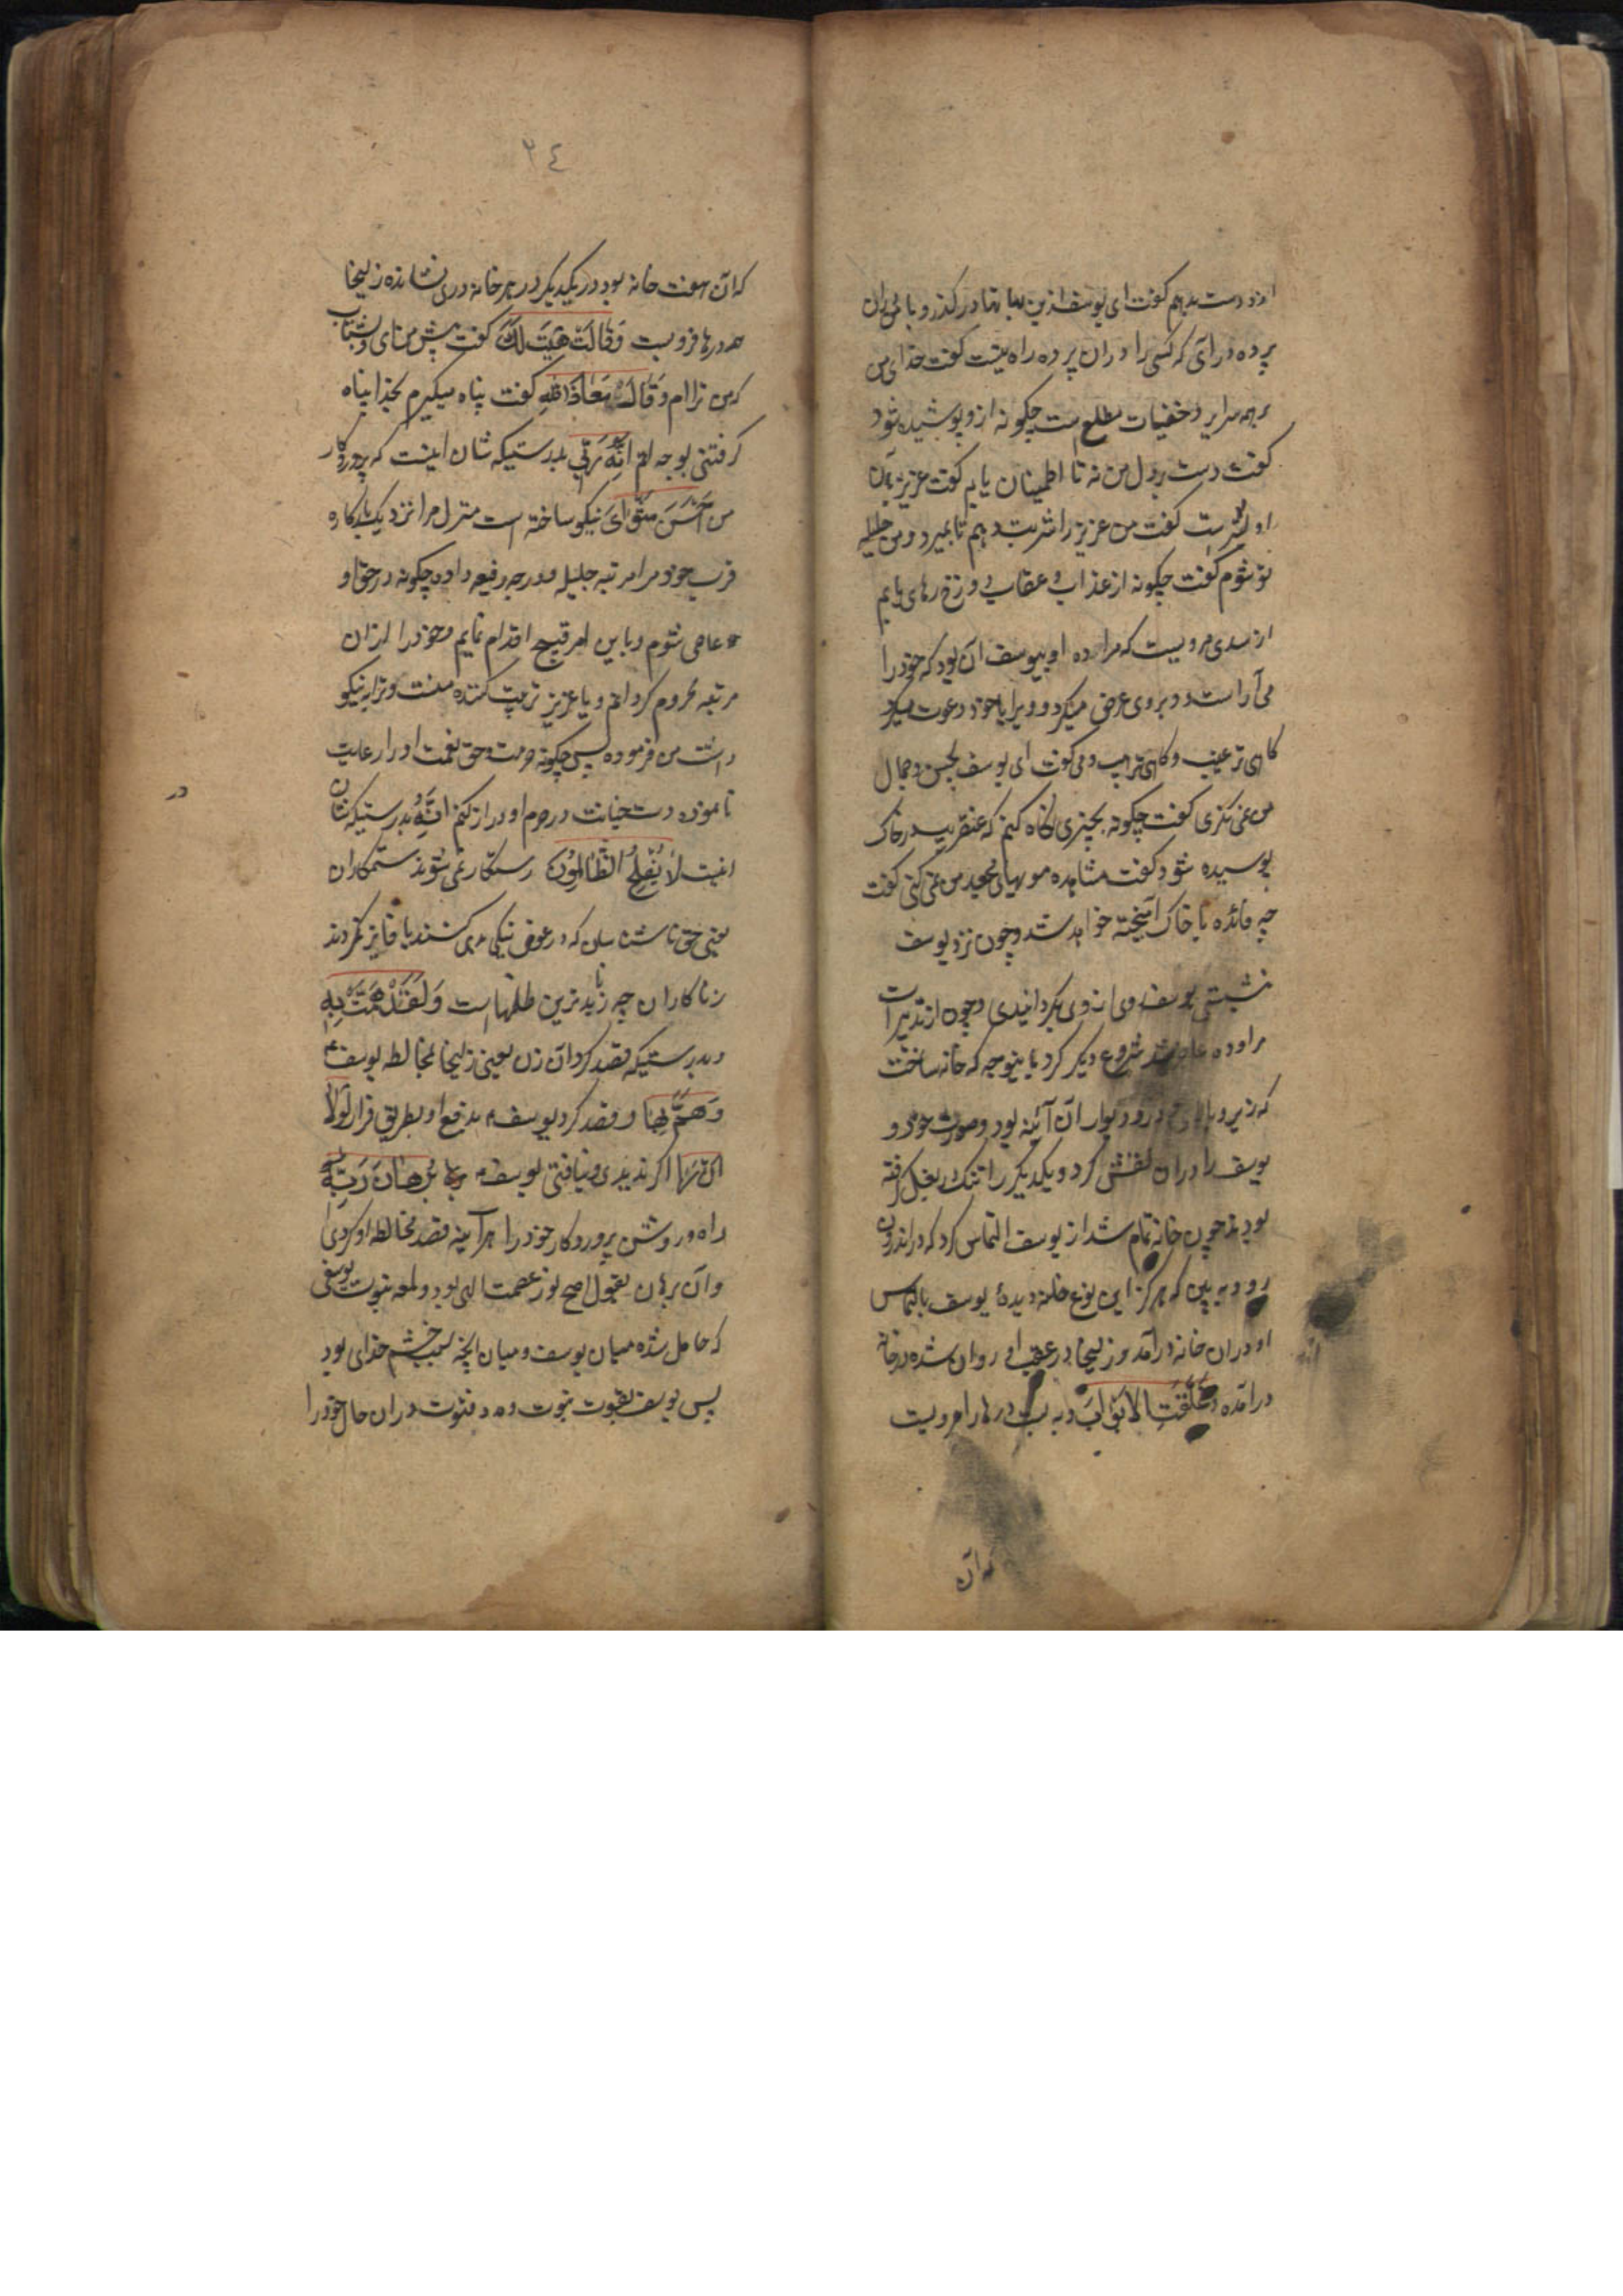 از دست بدهم گفت ای یوسف ازین بهانها درگذر و با من در آن
پرده درآی که کسی را در ان پرده راه نیست گفت خدای من
بر همه سرایر و خفیات مطلع ست چگونه ازو پوشیده شود
گفت دست بر دل من نه تا اطمینان یابم گفت عزیز بآن
اولیترست گفت من عزیز را شربت دهم تا بمیرد و من حلیله
تو شوم گفت چگونه از عذاب و عقاب دوزخ رهای یابم
از سدی مرویست که مراوده او بیوسف آن بود که خود را
می آراست و بروی عرض میکرد و ویرا با خود دعوت میکرد
گاهی ترغیب و گاهی ترهیب و می گفت ای یوسف بحسن و جمال
من نمی نگری گفت چگونه بچیزی نگاه کنم که عنقریب در خاک
پوسیده شود گفت مشاهده مویهای مجعد من نمی کنی گفت
چه فائده با خاک آمیخته خواهد شد و چون نزد یوسف
نشستی یوسف روی از وی بگردانیدی و چون از تدبیرات
مراوده عاجز شد شروع دیگر کرد باینوجه که خانه ساخت
که زیر و بالای و در و دیوار ان آئینه بود و صورت خود و
یوسف را در ان نقش کرد و یکدیگر را تنک بغل گرفته
بودند چون خانه تمام شد از یوسف التماس کرد که در اندرون
رو و به بین که هرگز این نوع خانه دیدۀ یوسف بالتماس
او در ان خانه درآمد و زلیخا در عقب او روان شده در خانه
درآمده وَغَلَّقَتِ الاَبْوَابَ و به بست درها را مرویست
که آن
٢٤
که آن هفت خانه بود در یکدیگر و در هر خانه دری نشانده زلیخا
همه درها فرو بست وَقَالَتْ هَیْتَ لَکَ گفت پیش من آی و بشتاب
که من تراام وَقَالَ مَعَاذَ اللهِ گفت پناه میگیرم بخدا پناه
گرفتنی بوجه اتم اِنَّهُ رَبِّی بدرستیکه شان اینست که پروردگار
من اَحْسَنَ مَثْوَایَ نیکو ساخته است منزل مرا نزدیک بارگاه
قرب خود و مرا مرتبه جلیله و درجه رفیعه داده چگونه در حق او
عاصی شوم و باین امر قبیح اقدام نمایم و خود را از ان
مرتبه محروم گردانم و یا عزیز تربیت کننده منست و ترا به نیکو
داشت من فرموده پس چگونه حرمت و حق نعمت او را رعایت
نانموده دست خیانت در حرم او دراز کنم اِنَّهُ بدرستیکه شان
در
اینست لَا یُفْلِحُ الظَّالِمُونَ رستگار نمی شوند ستمکاران
یعنی حق ناشناسان که در عوض نیکی بدی کنند یا فایز نگردند
زناکاران چه زنا بدترین ظلمهاست وَلَقَدْ هَمَّتْ بِهِ
و بدرستیکه قصد کرد آن زن یعنی زلیخا بمخالطه یوسف
وَهَمَّ بِهَا و قصد کرد یوسف بدفع او بطریق فرار لَوْلَا
اَنْ رَاٰ اگر ندیدی و نیافتی یوسف بُرْهَانَ رَبِّهِ
راه و روشن پروردگار خود را هرآینه قصد مخالطه او کردی
و آن برهان بقول اصح نور عصمت الهی بود و لمعه نبوت یوسفی
که حایل شده میان یوسف و میان آنچه سبب خشم خدای بود
پس یوسف بقوت نبوت و مدد فتوت در ان حال خود را